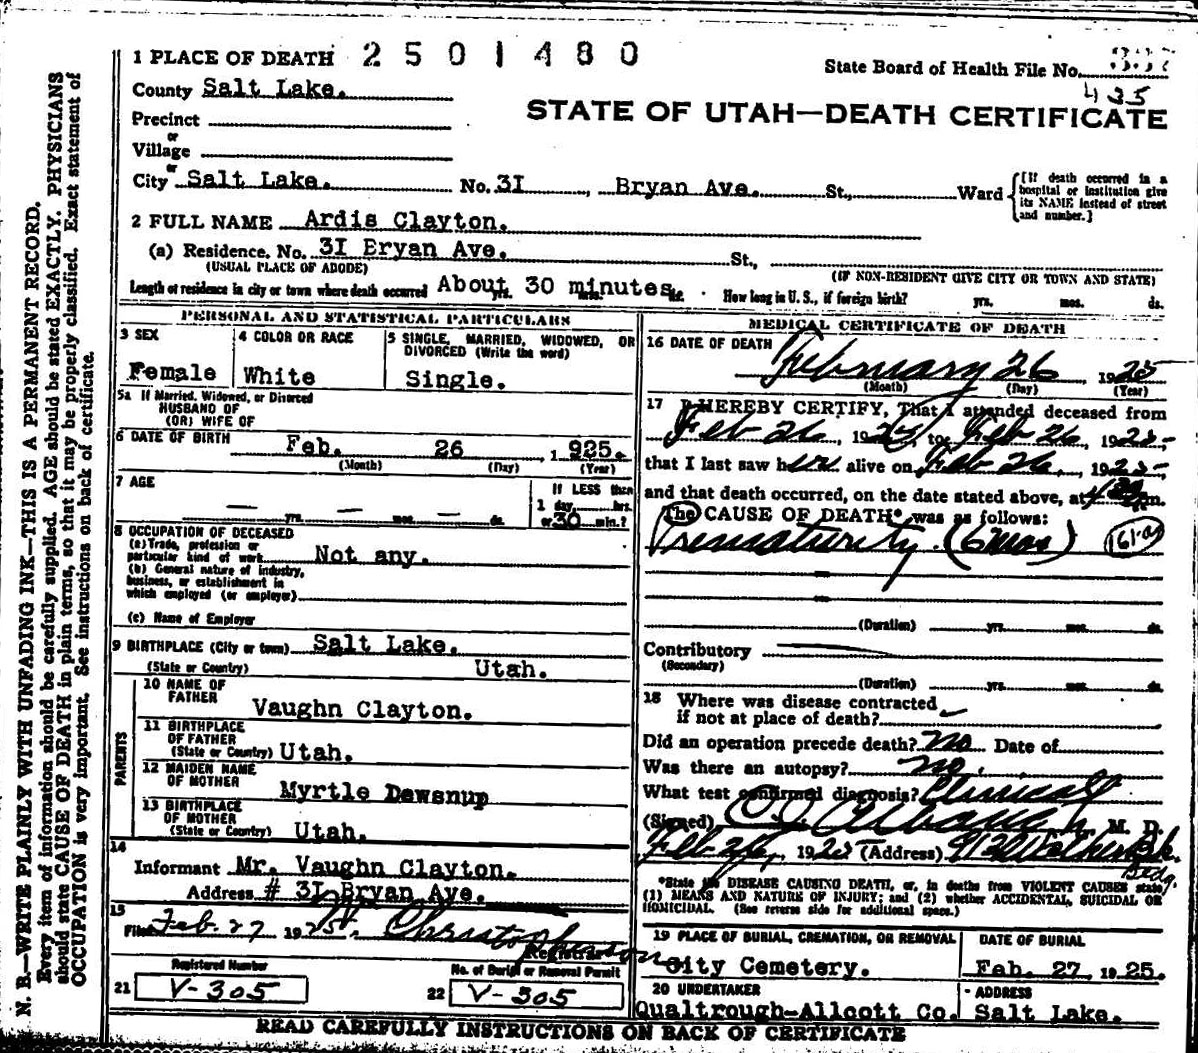 1 PLACE OF DEATH 2501480
State Board of Health File No.
435
County Salt Lake.
STATE OF UTAH—DEATH CERTIFICATE
Precinct
or
Village
or
City Salt Lake. No. 31, Bryan Ave. St., Ward
[If death occurred in a hospital or institution give its NAME instead of street and number.]
2 FULL NAME Ardis Clayton.
(a) Residence. No. 31 Bryan Ave. St.,
(USUAL PLACE OF ABODE) (IF NON-RESIDENT GIVE CITY OR TOWN AND STATE)
Length of residence in city or town where death occurred About yrs. 30 minutes mos. ds. How long in U. S., if foreign birth? yrs. mos. ds.
PERSONAL AND STATISTICAL PARTICULARS
3 SEX
Female
4 COLOR OR RACE
White
5 SINGLE, MARRIED, WIDOWED, OR DIVORCED (Write the word)
Single.
5a If Married, Widowed, or Divorced
HUSBAND OF
(OR) WIFE OF
6 DATE OF BIRTH Feb. 26, 1925.
(Month) (Day) (Year)
7 AGE
— yrs. — mos. — ds.
If LESS than
1 day, hrs.
or 30 min.?
8 OCCUPATION OF DECEASED
(a) Trade, profession or
particular kind of work Not any.
(b) General nature of industry,
business, or establishment in
which employed (or employer)
(c) Name of Employer
9 BIRTHPLACE (City or town) Salt Lake.
(State or Country) Utah.
PARENTS
10 NAME OF
FATHER Vaughn Clayton.
11 BIRTHPLACE
OF FATHER
(State or Country) Utah.
12 MAIDEN NAME
OF MOTHER Myrtle Dewsnup
13 BIRTHPLACE
OF MOTHER
(State or Country) Utah.
14
Informant Mr. Vaughn Clayton.
Address # 31 Bryan Ave.
15
Filed Feb. 27 1925 Christopherson
Registrar
Registered Number
21 V-305
No. of Burial or Removal Permit
22 V-305
MEDICAL CERTIFICATE OF DEATH
16 DATE OF DEATH
February 26, 1925
(Month) (Day) (Year)
17 I HEREBY CERTIFY, That I attended deceased from
Feb 26, 1925, to Feb 26, 1925,
that I last saw her alive on Feb 26, 1925,
and that death occurred, on the date stated above, at 430 m.
The CAUSE OF DEATH* was as follows:
Prematurity (6 mos) 161-a
(Duration) yrs. mos. ds.
Contributory
(Secondary)
(Duration) yrs. mos. ds.
18 Where was disease contracted
if not at place of death?
Did an operation precede death? No Date of
Was there an autopsy? no.
What test confirmed diagnosis? Clinical
(Signed) M. D.
Feb 26, 1925 (Address) 912 Walker Bk. Bldg.
*State the DISEASE CAUSING DEATH, or, in deaths from VIOLENT CAUSES state
(1) MEANS AND NATURE OF INJURY; and (2) whether ACCIDENTAL, SUICIDAL OR
HOMICIDAL. (See reverse side for additional space.)
19 PLACE OF BURIAL, CREMATION, OR REMOVAL
City Cemetery.
DATE OF BURIAL
Feb. 27, 1925.
20 UNDERTAKER
Qualtrough-Allcott Co.
ADDRESS
Salt Lake.
READ CAREFULLY INSTRUCTIONS ON BACK OF CERTIFICATE
N. B.—WRITE PLAINLY WITH UNFADING INK—THIS IS A PERMANENT RECORD.
Every item of information should be carefully supplied. AGE should be stated EXACTLY. PHYSICIANS
should state CAUSE OF DEATH in plain terms, so that it may be properly classified. Exact statement of
OCCUPATION is very important. See instructions on back of certificate.